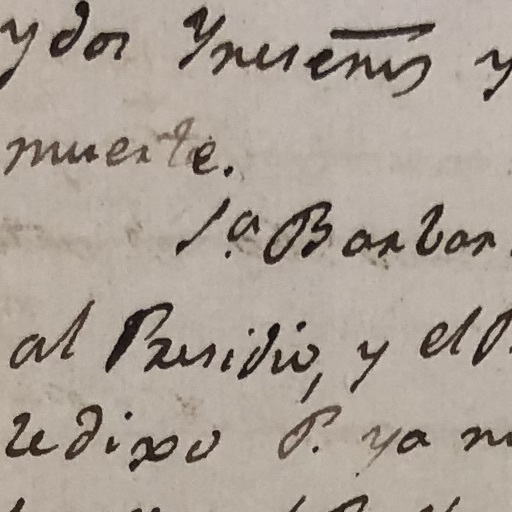 y dos Ynserens y
muerte.
Sª Barbar
al Presidio, y el P
le dixo P. ya no